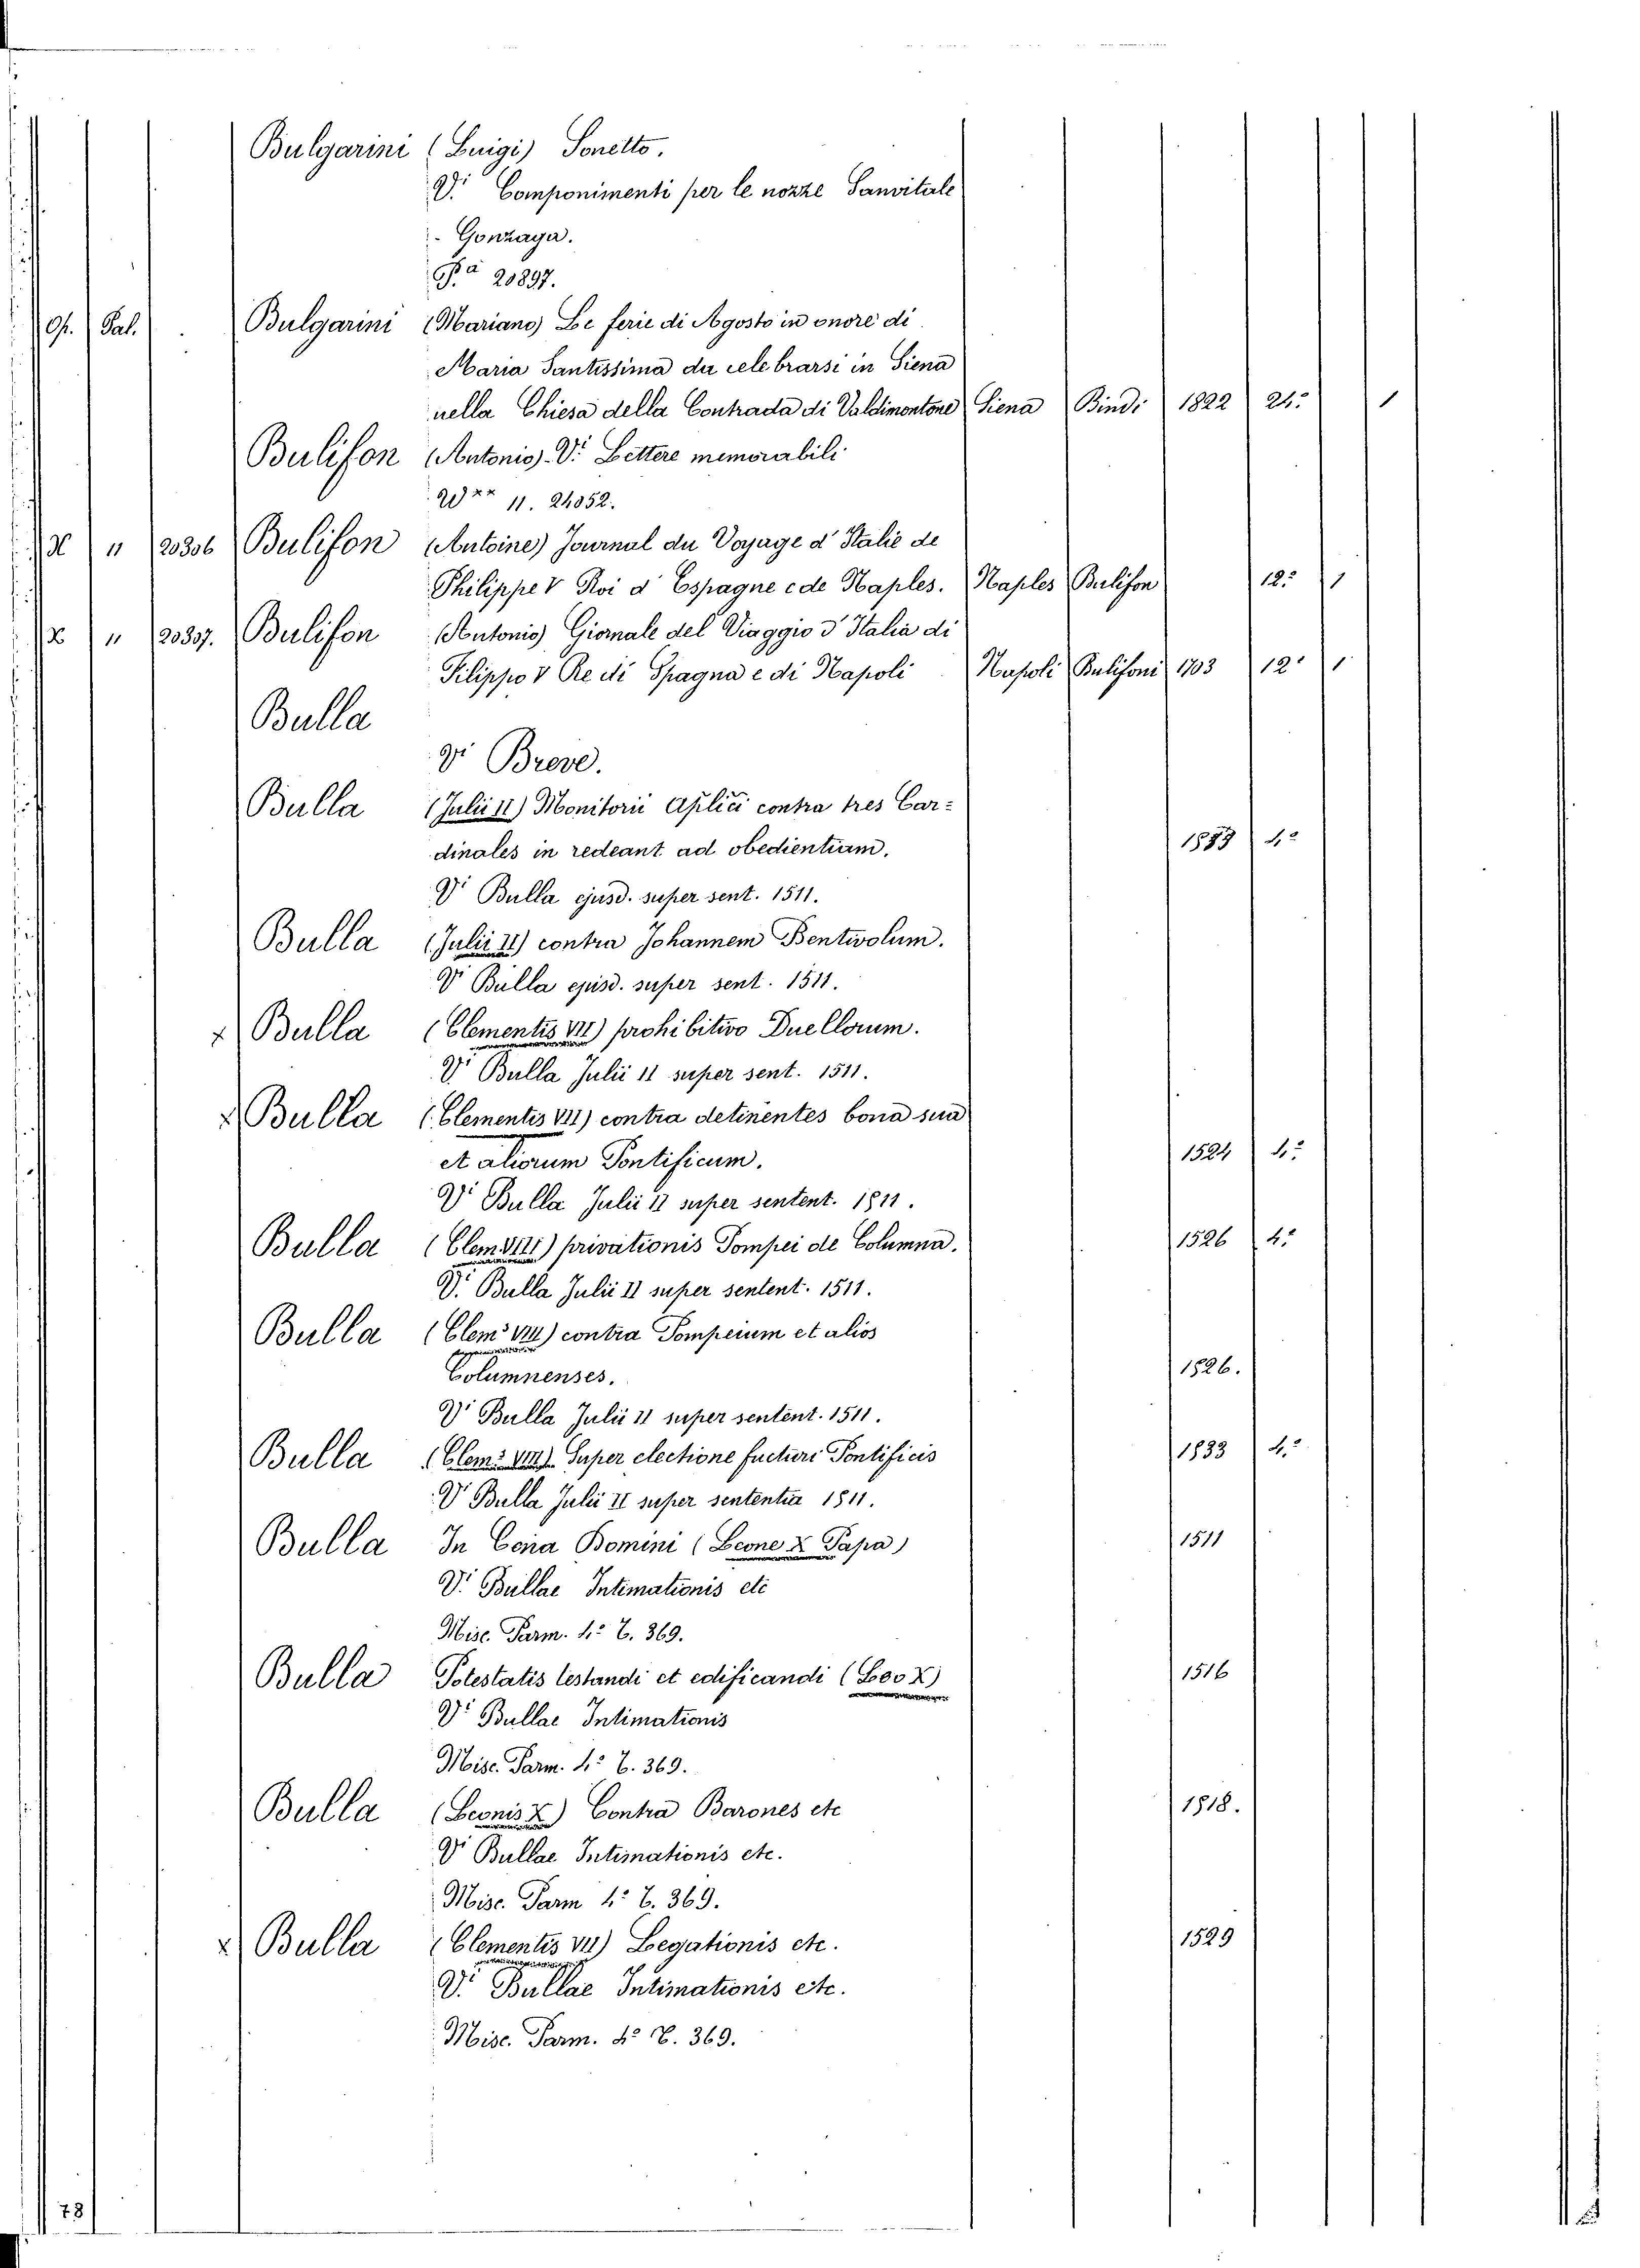 Bulgarini (Luigi) Sonetto.
Vi Componimenti per le nozze Sanvitale
- Gonzaga.
Pa 20897.
Op. Pal. Bulgarini (Mariano) Le ferie di Agosto in onore di
Maria Santissima da celebrarsi in Siena
nella Chiesa della Contrada di Valdimontone Siena Bindi 1822 24: 1
Bulifon (Antonio) Vi Lettere memorabili
11. 24052.
" 20306 Bulifon (Antoine) Journal du Voyage d'Italie de
Philippe V Roi d'Espagne e de Naples. Naples Bulifon 12: 1
" 20307. Bulifon (Antonio) Giornale del Viaggio d'Italia di
Filippo V Re di Spagna e di Napoli Napoli Bulifoni 1703 12: 1
Bulla
Vi Breve.
Bulla (Julii II) Monitorii Aplici contra tres Car=
dinales in redeant ad obedientiam.
4:
Vi Bulla ejusd. super sent. 1511.
Bulla (Julii II) contra Johannem Bentivolum.
Vi Bulla ejusd. super sent. 1511.
x Bulla (Clementis VII) prohibitivo Duellorum.
Vi Bulla Julii II super sent. 1511.
x Bulla (Clementis VII) contra detinentes bona sua
et aliorum Pontificum. 1524 4:
Vi Bulla Julii II super sentent. 1511.
Bulla (Clem VIII) privationis Pompei de Columna. 1526 4:
Vi Bulla Julii II super sentent. 1511.
Bulla (Clem: VIII) contra Pompeium et alios
Columnenses. 1526.
Vi Bulla Julii II super sentent. 1511.
Bulla (Clem: VIII) Super electione facturi Pontificis 1533 4:
Vi Bulla Julii II super sententia 1511.
Bulla In Cena Domini (Leone X Papa) 1511
Vi Bullae Intimationis etc
Misc. Parm. 4: T. 369.
Bulla Potestatis testandi et edificandi (Leo X) 1516
Vi Bullae Intimationis
Misc. Parm. 4: T. 369.
Bulla (Leonis X) Contra Barones etc 1518.
Vi Bullae Intimationis etc.
Misc. Parm 4: T. 369.
x Bulla (Clementis VII) Legationis etc. 1529
Vi Bullae Intimationis etc.
Misc. Parm. 4: T. 369.
78